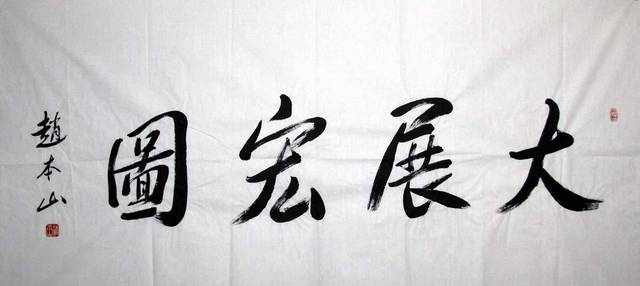 大展宏圖
趙本山